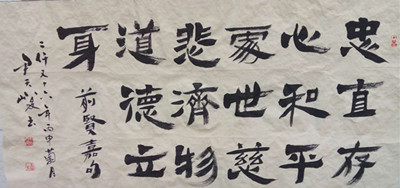 忠直存
心和平
處世慈
悲濟物
道德立
身
前賢嘉句
二仟又十六年丙申菊月